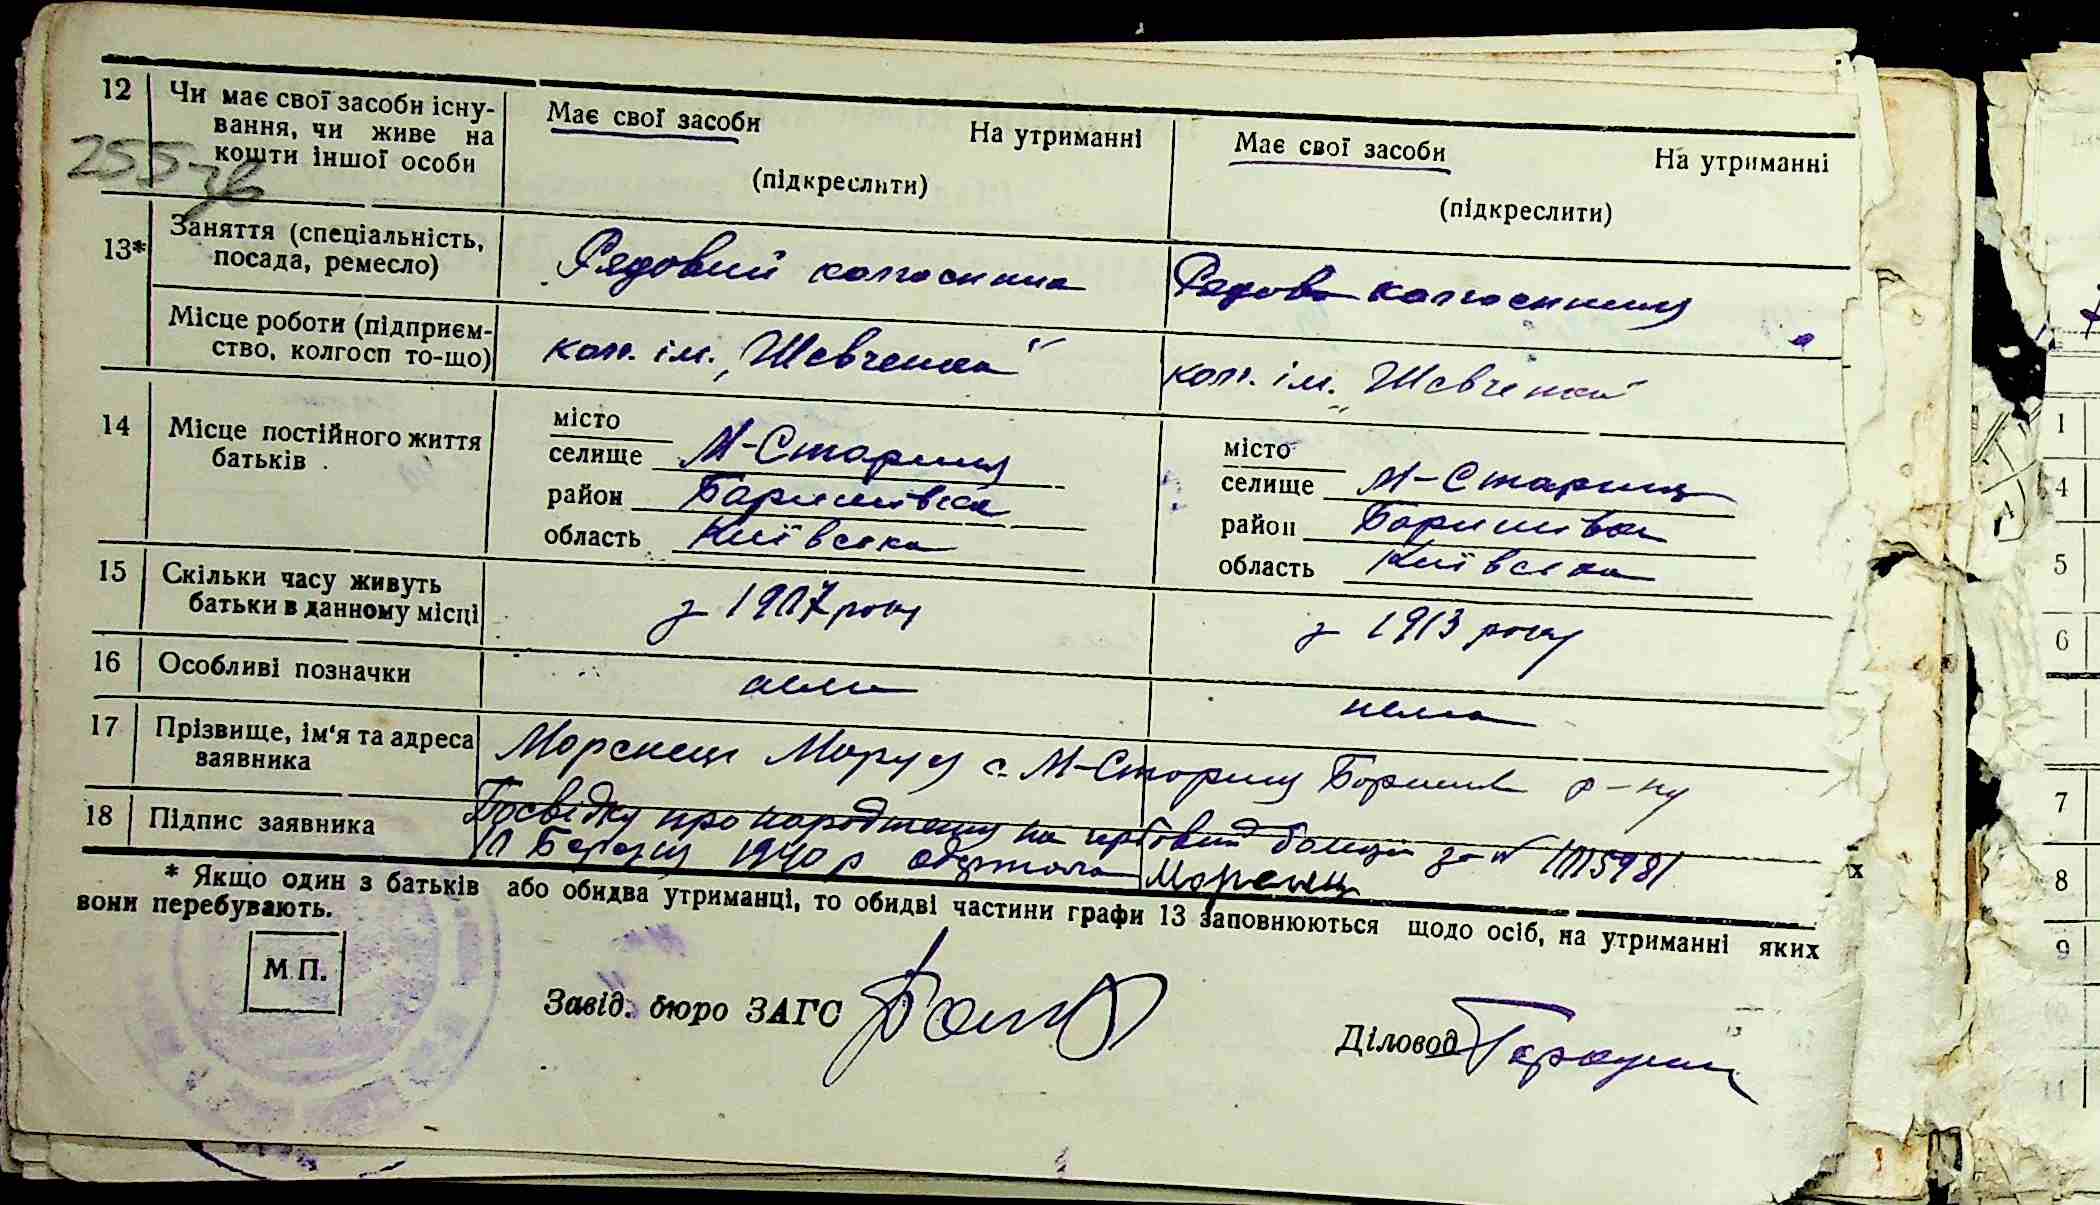 12 Чи має свої засоби існу- Має свої засоби На утриманні Має свої засоби На утриманні
вання, чи живе на
кошти іншої особи (підкреслити) (підкреслити)
255зв
13* Заняття (спеціальність, Рядовий колгоспник Рядова колгоспниця
посада, ремесло)
Місце роботи (підприєм- колг. ім. „Шевченка" колг. ім. „Шевченка"
ство, колгосп то-що)
14 Місце постійного життя місто місто
батьків селище М-Стариця селище М-Стариця
район Баришівка район Баришівка
область Київська область Київська
15 Скільки часу живуть з 1907 року з 1913 року
батьки в данному місці
16 Особливі позначки нема нема
17 Прізвище, ім'я та адреса Моренець Марія с. М-Стариця Баришів р-ну
заявника
18 Підпис заявника Посвідку про народження на гербовій бланці за №
березня 1940 р одержала Моренець
* Якщо один з батьків або обидва утриманці, то обидві частини графи 13 заповнюються щодо осіб, на утриманні яких
вони перебувають.
М.П.
Завід. бюро ЗАГС
Діловод
1
4
5
6
7
8
9
10
11